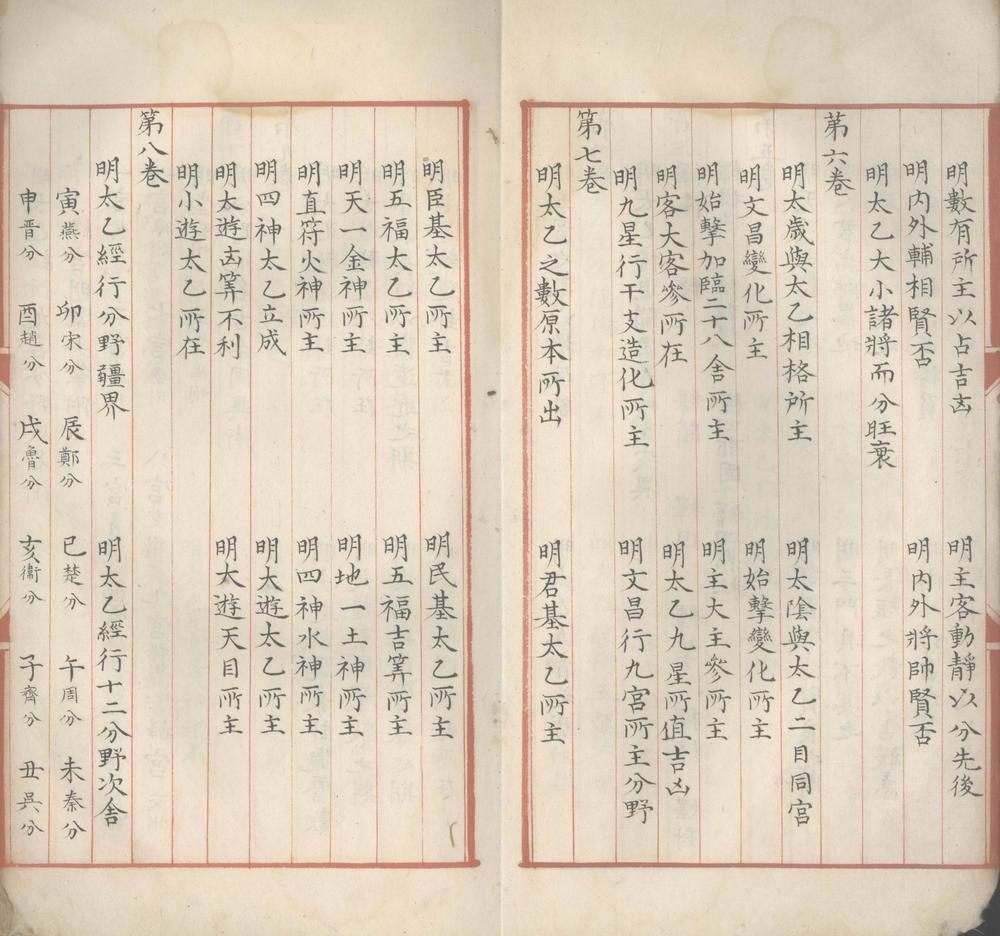 明數有所主以占吉凶　明主客動靜以分先後
明內外輔相賢否　明內外將帥賢否
明太乙大小諸將而分旺衰
第六卷
明太歲與太乙相格所主　明太陰與太乙二目同宮
明文昌變化所主　明始擊變化所主
明始擊加臨二十八舍所主　明主大主參所主
明客大客參所在　明太乙九星所值吉凶
明九星行干支造化所主　明文昌行九宮所主分野
第七卷
明太乙之數原本所出　明君基太乙所主
明臣基太乙所主　明民基太乙所主
明五福太乙所主　明五福吉筭所主
明天一金神所主　明地一土神所主
明直符火神所主　明四神水神所主
明四神太乙立成　明大遊太乙所主
明大遊凶筭不利　明大遊天目所主
明小遊太乙所在
第八卷
明太乙經行分野疆界　明太乙經行十二分野次舍
寅燕分　卯宋分　辰鄭分　巳楚分　午周分　未秦分
申晋分　酉趙分　戌魯分　亥衞分　子齊分　丑吳分